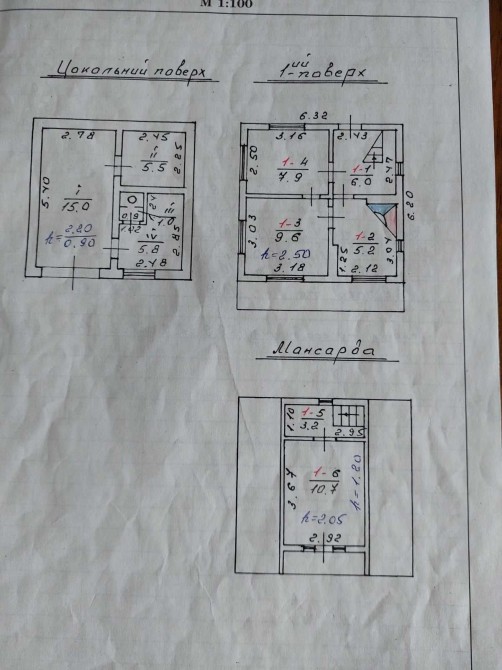 М 1:100
Цокольний поверх
1-ий поверх
6.32
2.78
2.45
5.40
i
15.0
h= 2.20
0.90
ii
5.5
2.25
iii
1.0
5.8
2.85
2.18
3.16
2.43
2.50
1-4
7.9
1-1
6.0
2.47
6.20
3.03
1-3
9.6
h=2.50
3.18
1-2
5.2
1.25
3.04
2.12
Мансарда
1.10
1-5
3.2
2.95
3.67
1-6
10.7
h=1.20
h=2.05
2.92